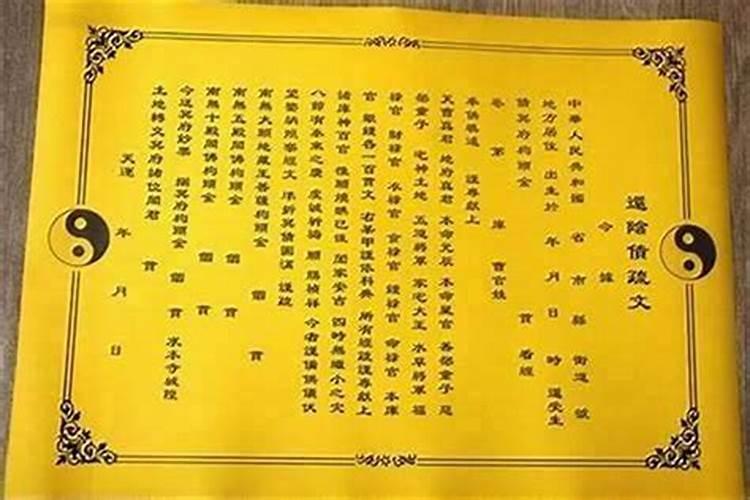 還陰債疏文
今據
中華人民共和國 省 市 縣 街道 號
地方居住 出生於 年 月 日 時 還學生
請冥府枸頭金 貫 看經
卷 第 庫 曹官姓
奉佛暖還 謹專獻上
天曹真君 地府真君 本命元辰 本命星官 善部童子 惡
部童子 宅神土地 五道將軍 家宅大王 水草將軍 福
祿官 財祿官 衣祿官 食祿官 錢祿官 命祿官 本庫
官 銀錢各一百貫文 右某甲謹依科典 所有經疏謹專獻上
諸庫神百官 惟願燒醮已後 闔家安吉 四時無纖小之災
八節有泰來之慶 虔誠祈禱 願賜禎祥 今者謹備供儀伏
望鑒納燒奏經文 準折冥債圓滿 謹疏
南無大願地藏王菩薩枸頭金 個 貫
南無五殿閻佛枸頭金 個 貫
南無十殿閻佛枸頭金 個 貫
今還冥府鈔票 摺冥府枸頭金 個 貫 眾本寺城隍
土地轉文冥府諸位閻君 貫
天運 年 月 日